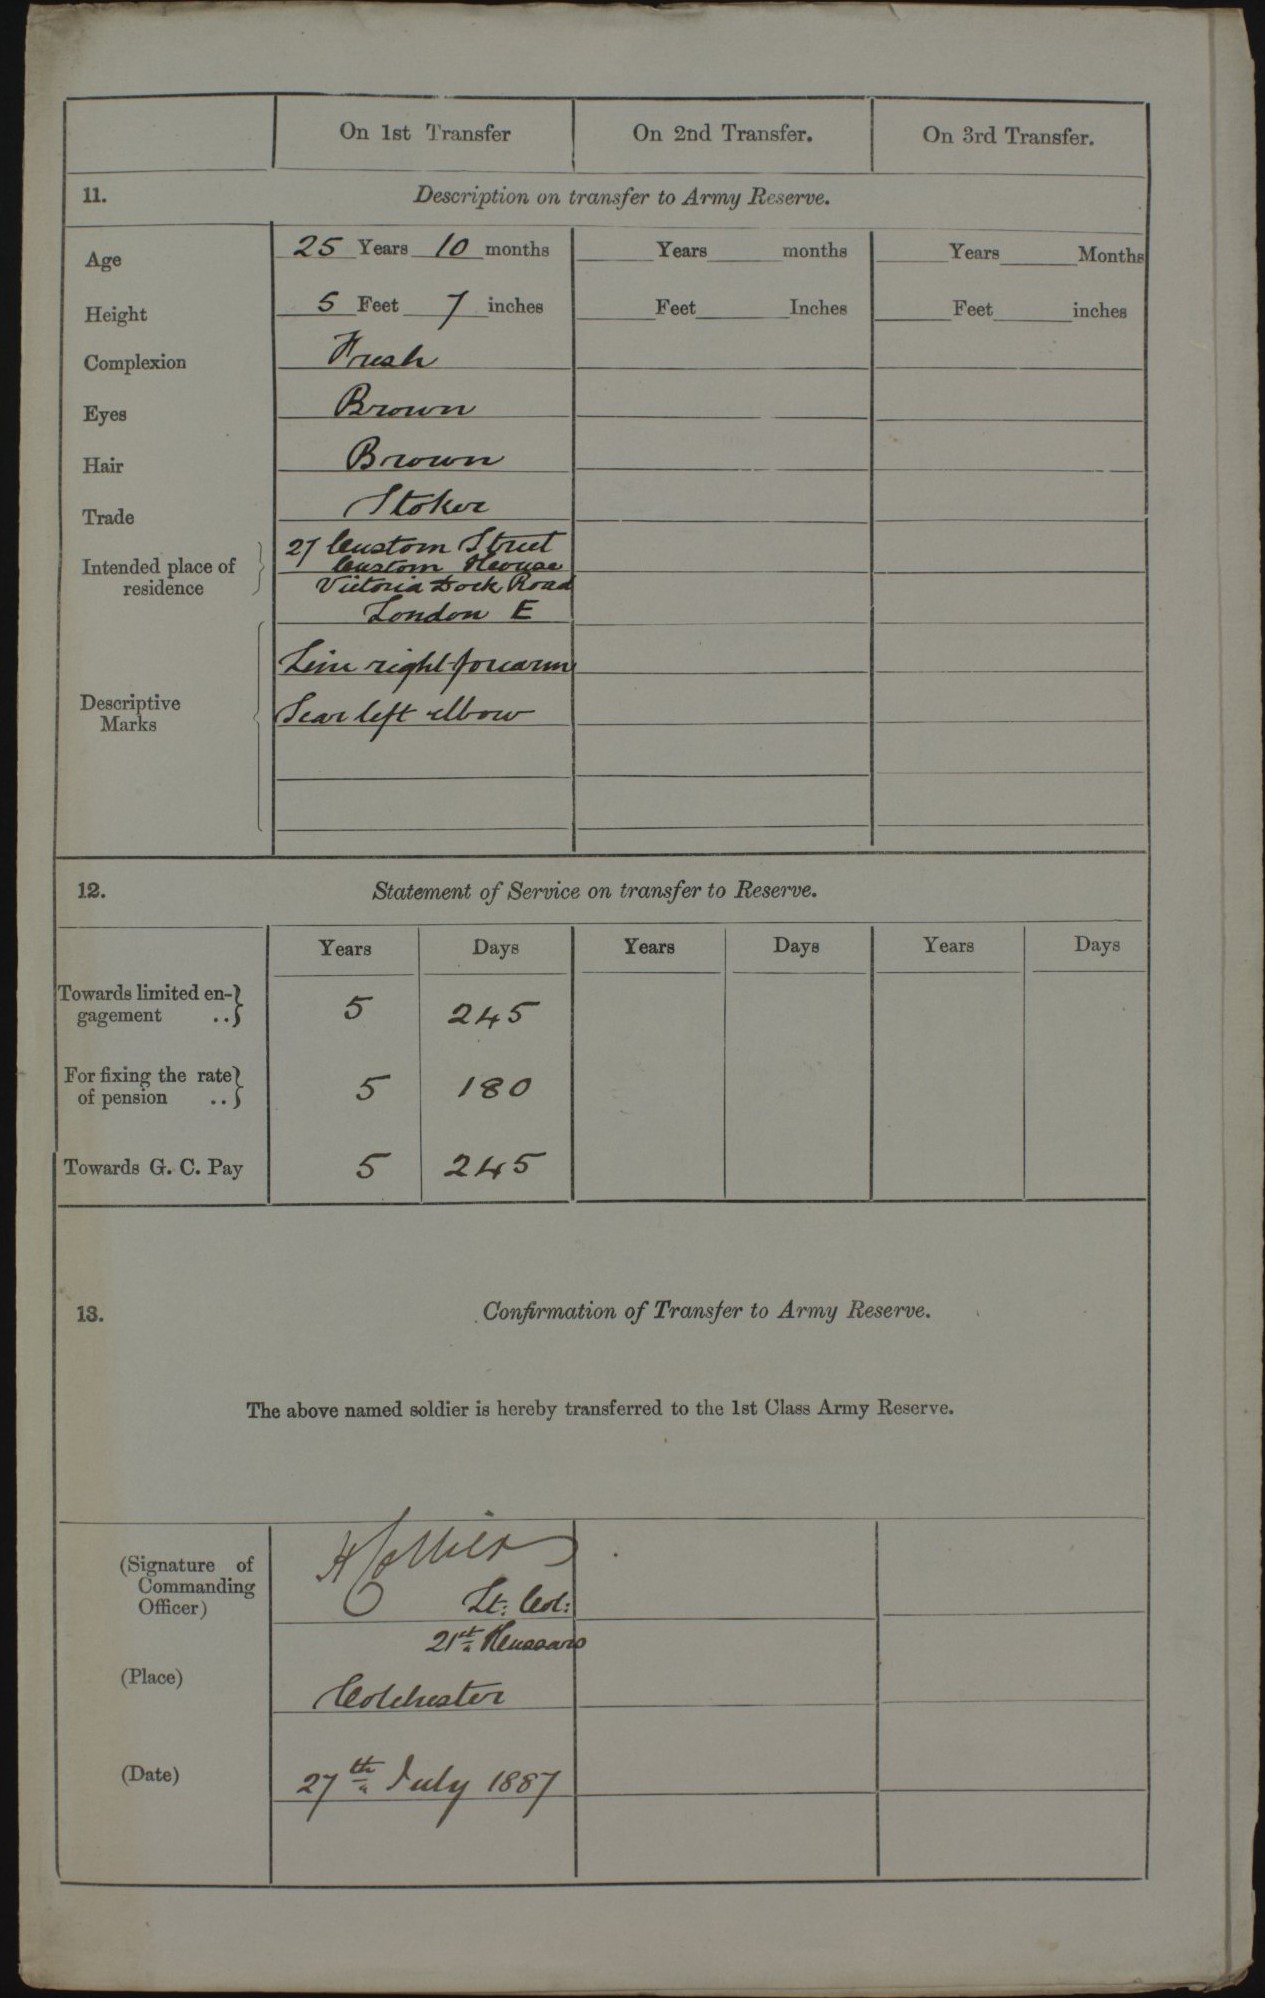 On 1st Transfer On 2nd Transfer. On 3rd Transfer.
11. Description on transfer to Army Reserve.
Age 25 Years 10 months Years months Years Months
Height 5 Feet 7 inches Feet Inches Feet inches
Complexion Fresh
Eyes Brown
Hair Brown
Trade Stoker
Intended place of residence 27 Custom Street
Custom House
Victoria Dock Road
London E
Descriptive Marks right forearm
Scar left elbow
12. Statement of Service on transfer to Reserve.
Years Days Years Days Years Days
Towards limited en-
gagement .. 5 245
For fixing the rate
of pension .. 5 180
Towards G. C. Pay 5 245
13. Confirmation of Transfer to Army Reserve.
The above named soldier is hereby transferred to the 1st Class Army Reserve.
(Signature of
Commanding
Officer)
Lt: Col:
21st Hussars
(Place) Colchester
(Date) 27th July 1887